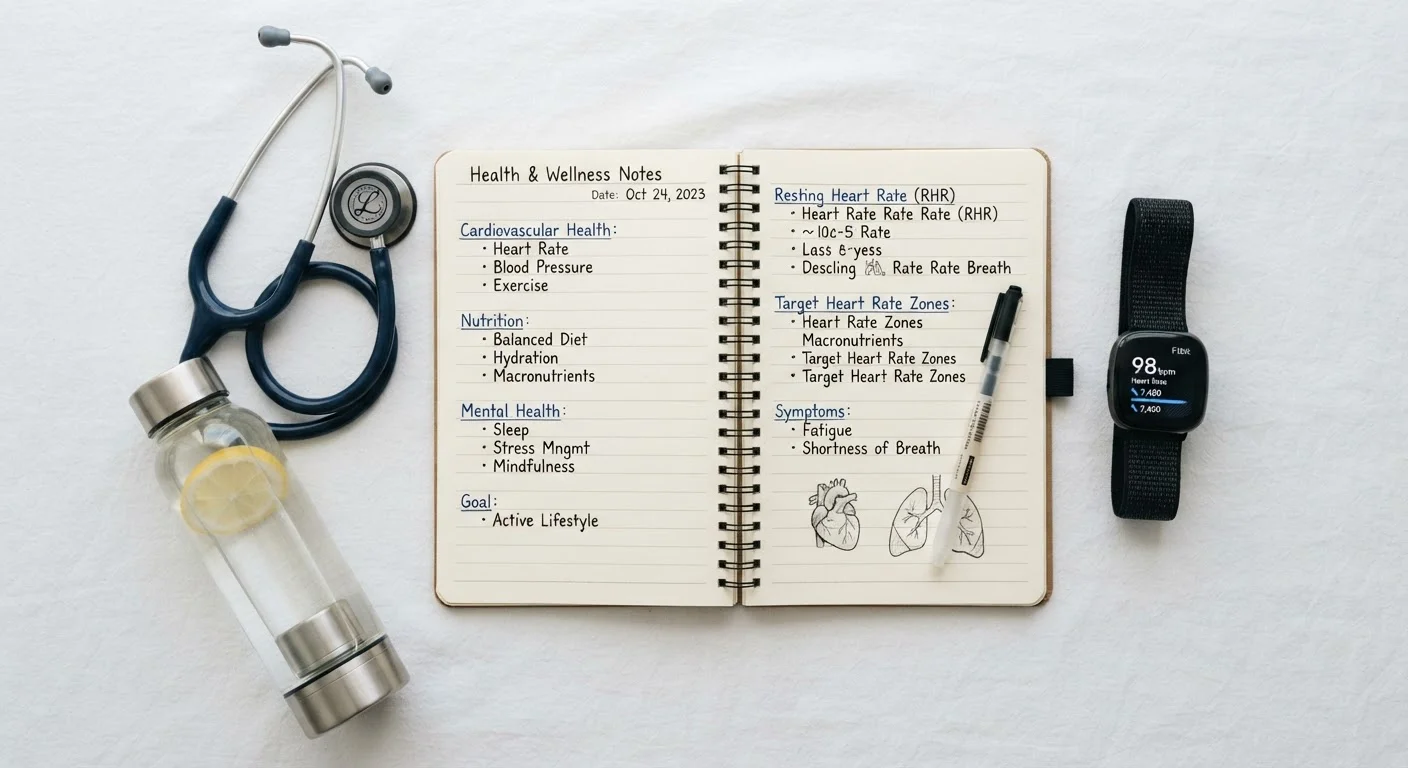 Health & Wellness Notes
Date: Oct 24, 2023
Cardiovascular Health:
· Heart Rate
· Blood Pressure
· Exercise
Nutrition:
· Balanced Diet
· Hydration
· Macronutrients
Mental Health:
· Sleep
· Stress Mngmt
· Mindfulness
Goal:
· Active Lifestyle
Resting Heart Rate (RHR)
· Heart Rate Rate Rate (RHR)
· ~10c-5 Rate
· Lass 6-yess
· Descling Rate Rate Breath
Target Heart Rate Zones:
· Heart Rate Zones
Macronutrients
· Target Heart Rate Zones
· Target Heart Rate Zones
Symptoms:
· Fatigue
· Shortness of Breath
98 bpm
7,480
7,400
L